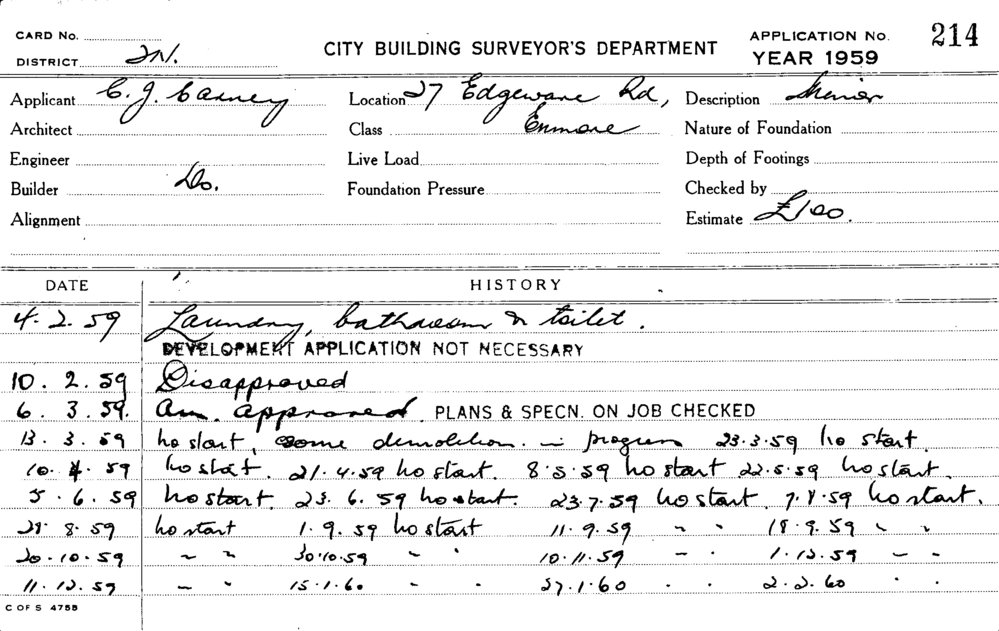 CARD No.
DISTRICT 2N.
CITY BUILDING SURVEYOR'S DEPARTMENT
APPLICATION No. 214
YEAR 1959
Applicant C. J. Carney Location 27 Edgeware Rd, Description Minor
Architect Class Enmore Nature of Foundation
Engineer Live Load Depth of Footings
Builder Do. Foundation Pressure Checked by
Alignment Estimate £100.
DATE HISTORY
4. 2. 59 Laundry, bathroom & toilet.
DEVELOPMENT APPLICATION NOT NECESSARY
10. 2. 59 Disapproved
6. 3. 59. Am. approved. PLANS & SPECN. ON JOB CHECKED
13. 3. 59 no start, some demolition in progress 23.3.59 no start
10. 4. 59 no start. 21.4.59 no start. 8.5.59 no start 22.5.59 no start.
5. 6. 59 no start. 23.6.59 no start. 23.7.59 no start. 7.8.59 no start.
28. 8. 59 no start 1.9.59 no start 11.9.59 " " 18.9.59 " "
20.10.59 " " 30.10.59 " " 10.11.59 " " 1.12.59 " "
11.12.59 " " 15.1.60 " " 27.1.60 " " 2.2.60 " "
C OF S 4755